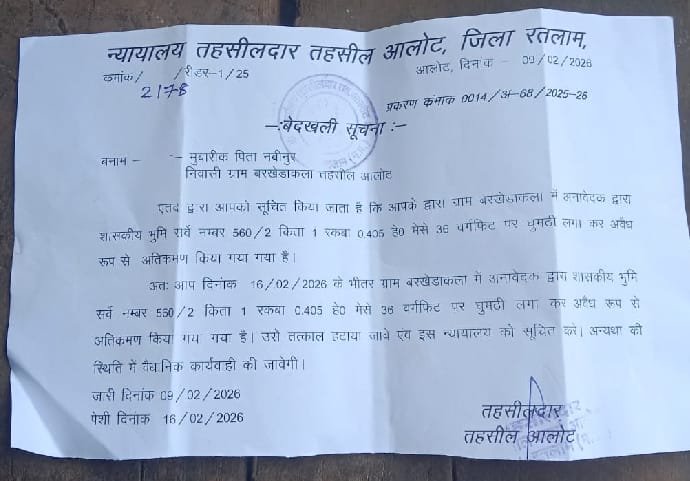 न्यायालय तहसीलदार तहसील आलोट, जिला रतलाम,
कमांक/ /रीडर-1/25 आलोट, दिनांक - 09/02/2026
2178
प्रकरण कमांक 0014/अ-68/2025-26
-:बेदखली सूचना:-
बनाम - -- मुबारीक पिता नबीनुर
निवासी ग्राम बरखेडाकला तहसील आलोट
एतद द्वारा आपको सूचित किया जाता है कि आपके द्वारा ग्राम बरखेडाकला में अनावेदक द्वारा
शासकीय भूमि सर्वे नम्बर 560/2 किता 1 रकबा 0.405 हे0 मेसे 36 वर्गफिट पर घुमटी लगा कर अवैध
रूप से अतिकमण किया गया गया है।
अतः आप दिनांक 16/02/2026 के भीतर ग्राम बरखेडाकला में अनावेदक द्वारा शासकीय भूमि
सर्वे नम्बर 560/2 किता 1 रकबा 0.405 हे0 मेसे 36 वर्गफिट पर घुमटी लगा कर अवैध रूप से
अतिकमण किया गया गया है। उसे तत्काल हटाया जावे एंव इस न्यायालय को सूचित करे। अन्यथा की
स्थिति में वैधानिक कार्यवाही की जावेगी।
जारी दिनांक 09/02/2026
पेशी दिनांक 16/02/2026
तहसीलदार
तहसील आलोट